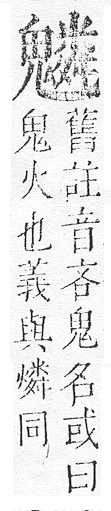 䰰
舊註音吝鬼名或曰
鬼火也義與燐同